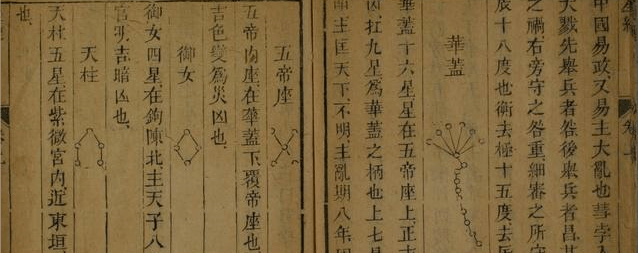 中國易政又易主大亂也彗孛入
大戮先舉兵者咎後舉兵者昌其
之禍右旁守之咎重細審之所守
辰十八度也衡去極十五度去辰
華蓋
華蓋十六星星在五帝座上正吉
凶扛九星爲華蓋之柄也上七星
明主匡天下不明主亂期八年
五帝座
五帝內座在華蓋下覆帝座也
吉色變爲災凶也
御女
御女四星在鉤陳北主天子八
官明吉暗凶也
天柱
天柱五星在紫微宮內近東垣
也